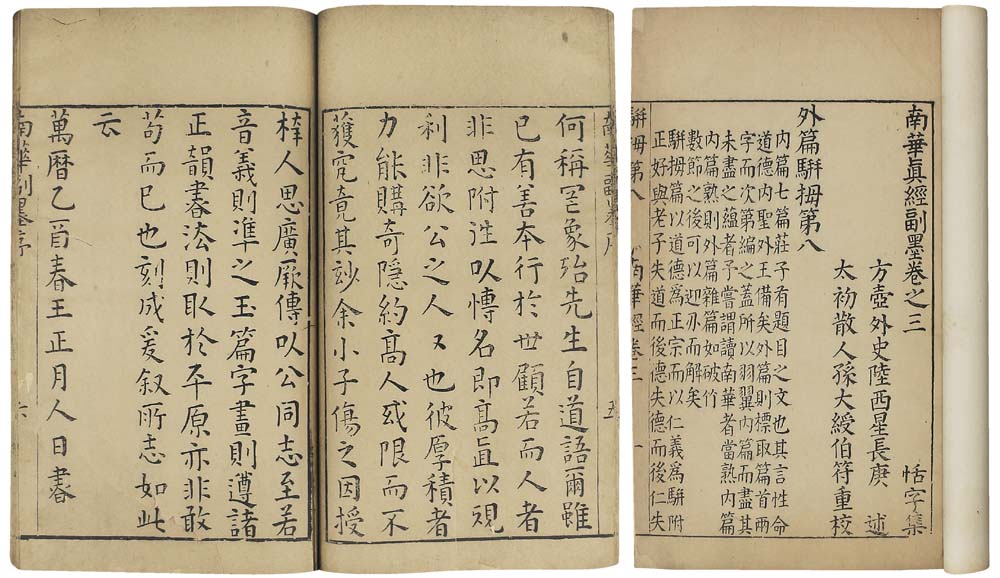 南華眞經副墨卷之三 恬字集
方壺外史陸西星長庚 述
太初散人孫大綬伯符重校
外篇駢拇第八
內篇七篇莊子有題目之文也其言性命
道德內聖外王備矣外篇則標取篇首兩
字而次第編之蓋所以羽翼內篇而盡其
未盡之蘊者予嘗謂讀南華者當熟內篇
內篇熟則外篇雜篇如破竹
數節之後可以迎刃而解矣
駢拇篇以道德爲正宗而以仁義爲駢附
正好與老子失道而後德失德而後仁失
駢拇第八 南華經卷三 一
五
何稱罔象殆先生自道語爾雖
已有善本行於世顧若而人者
非思附以慱名即髙以規
利非欲公之人又也彼厚積者
力能購奇隱約髙人或限而不
獲究竟其玅余小子傷之因授
梓人思廣厥傳以公同志至若
音義則準之玉篇字畫則遵諸
正韻書法則取於平原亦非敢
苟而已也刻成爰叙所志如此
云
萬曆乙酉春王正月人日書
南華副墨序 六